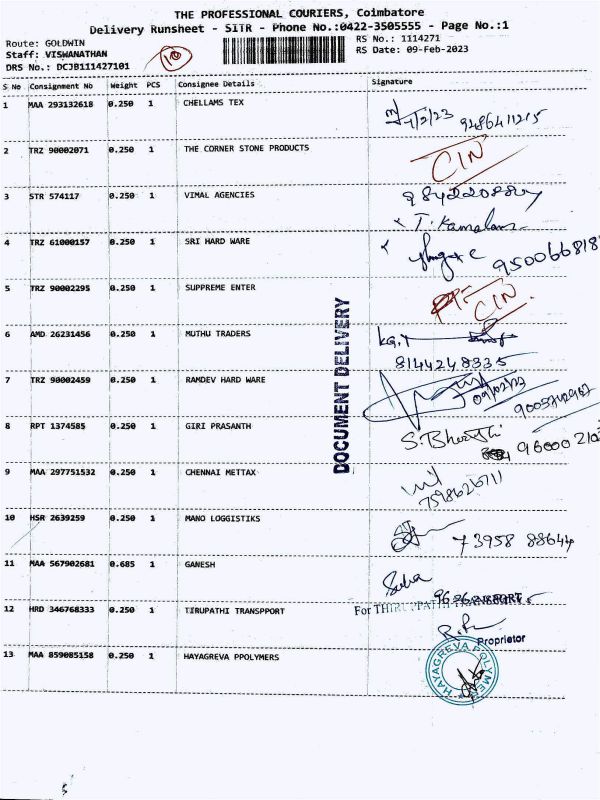 THE PROFESSIONAL COURIERS, Coimbatore
Delivery Runsheet - SITR - Phone No.:0422-3505555 - Page No.:1
Route: GOLDWIN
RS No.: 1114271
Staff: VISWANATHAN
10
RS Date: 09-Feb-2023
DRS No.: DCJB111427101
S No Consignment No Weight PCS Consignee Details Signature
1 MAA 293132618 0.250 1 CHELLAMS TEX
9486411215
2 TRZ 90002071 0.250 1 THE CORNER STONE PRODUCTS
CIN
3 STR 574117 0.250 1 VIMAL AGENCIES
T. Kamalam
4 TRZ 61000157 0.250 1 SRI HARD WARE
5 TRZ 90002295 0.250 1 SUPPREME ENTER
CIN
6 AMD 26231456 0.250 1 MUTHU TRADERS
8144248335
DOCUMENT DELIVERY
7 TRZ 90002459 0.250 1 RAMDEV HARD WARE
09/02/23
8 RPT 1374585 0.250 1 GIRI PRASANTH
S. Bharathi
9 MAA 297751532 0.250 1 CHENNAI METTAX
7598626711
10 HSR 2639259 0.250 1 MANO LOGGISTIKS
73958 88644
11 MAA 567902681 0.685 1 GANESH
12 HRD 346768333 0.250 1 TIRUPATHI TRANSPPORT
For THIRUPATHI TRANSPORT
Proprietor
13 MAA 859085158 0.250 1 HAYAGREVA PPOLYMERS
HAYAGREVA POLYMERS